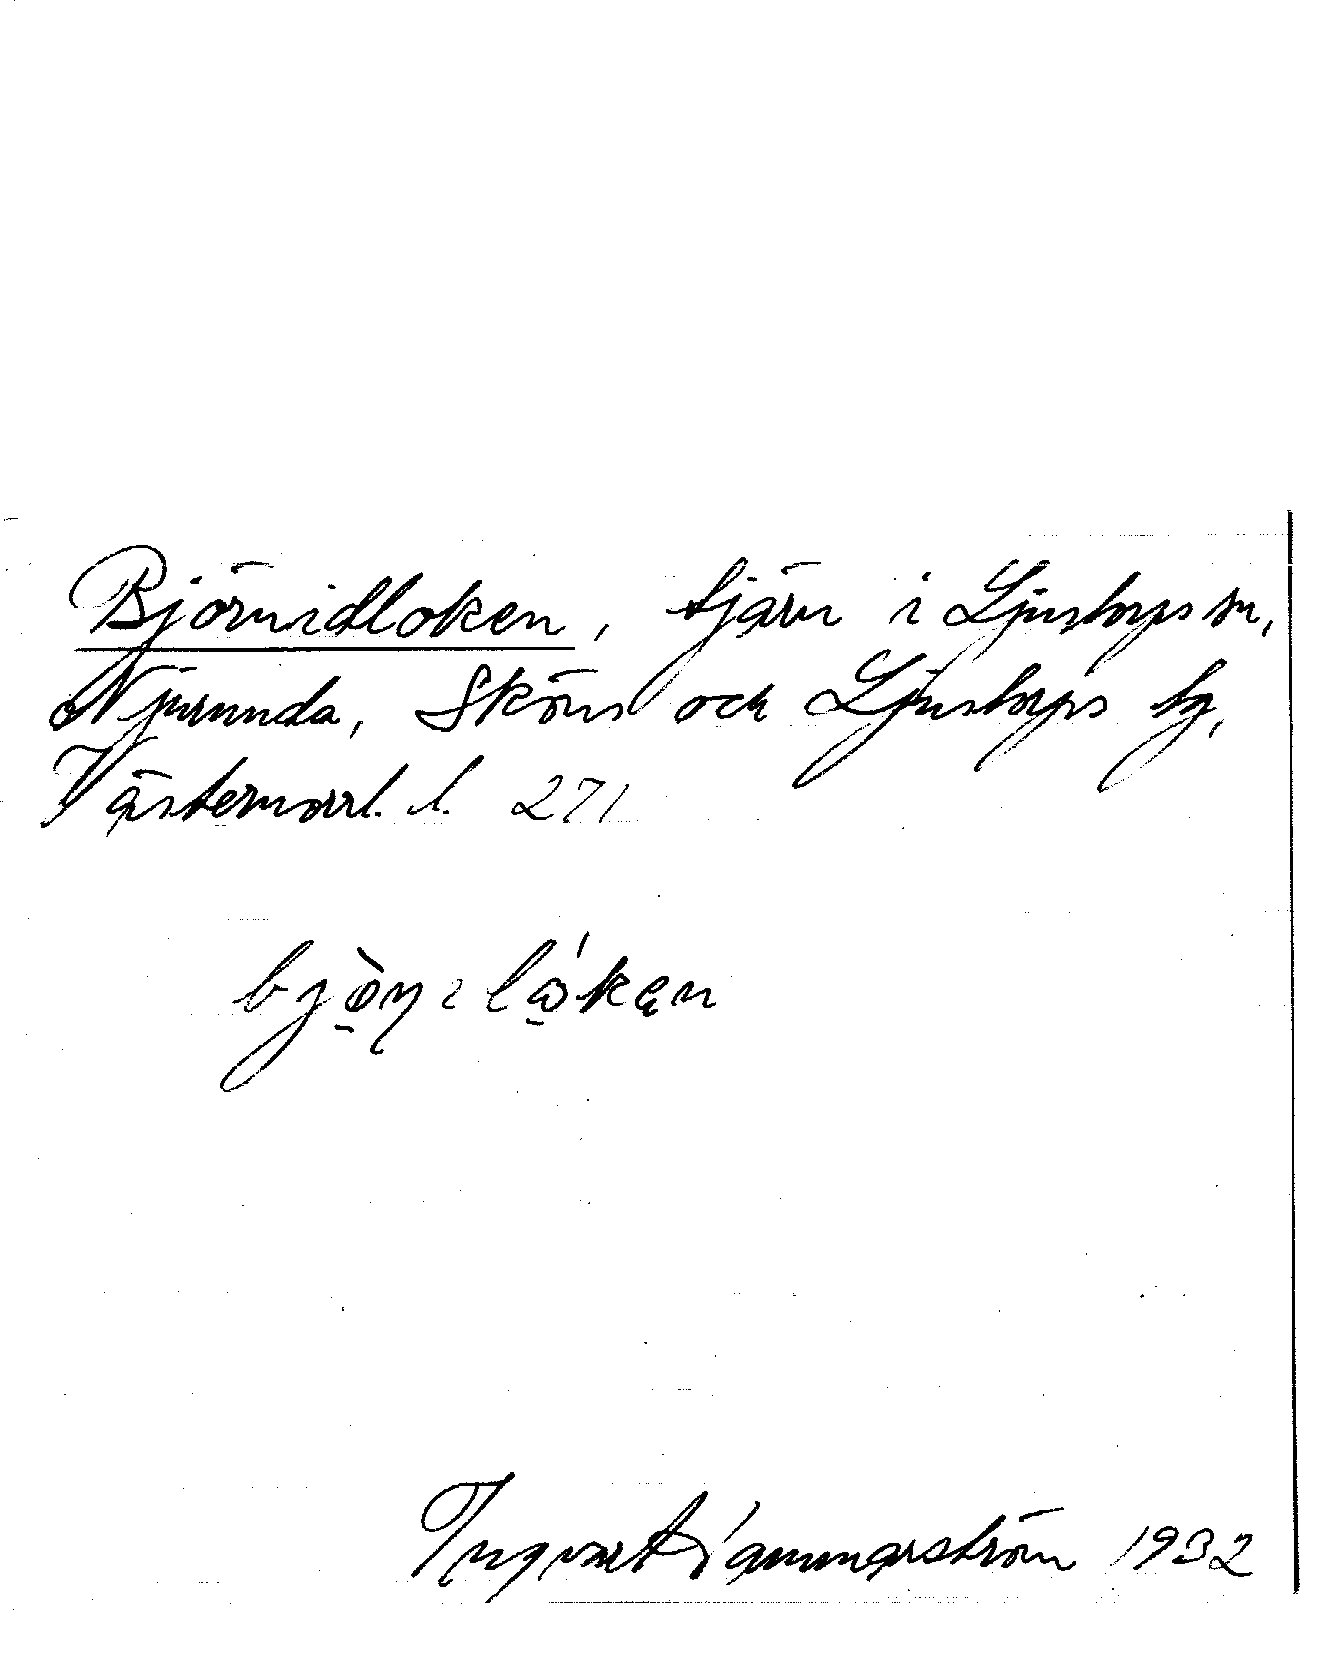 Björnidloken, tjärn i Ljustorps sn,
Njurunda, Sköns och Ljustorps tg,
Västernorrl. l. 271
Ingvar Hammarström 1932